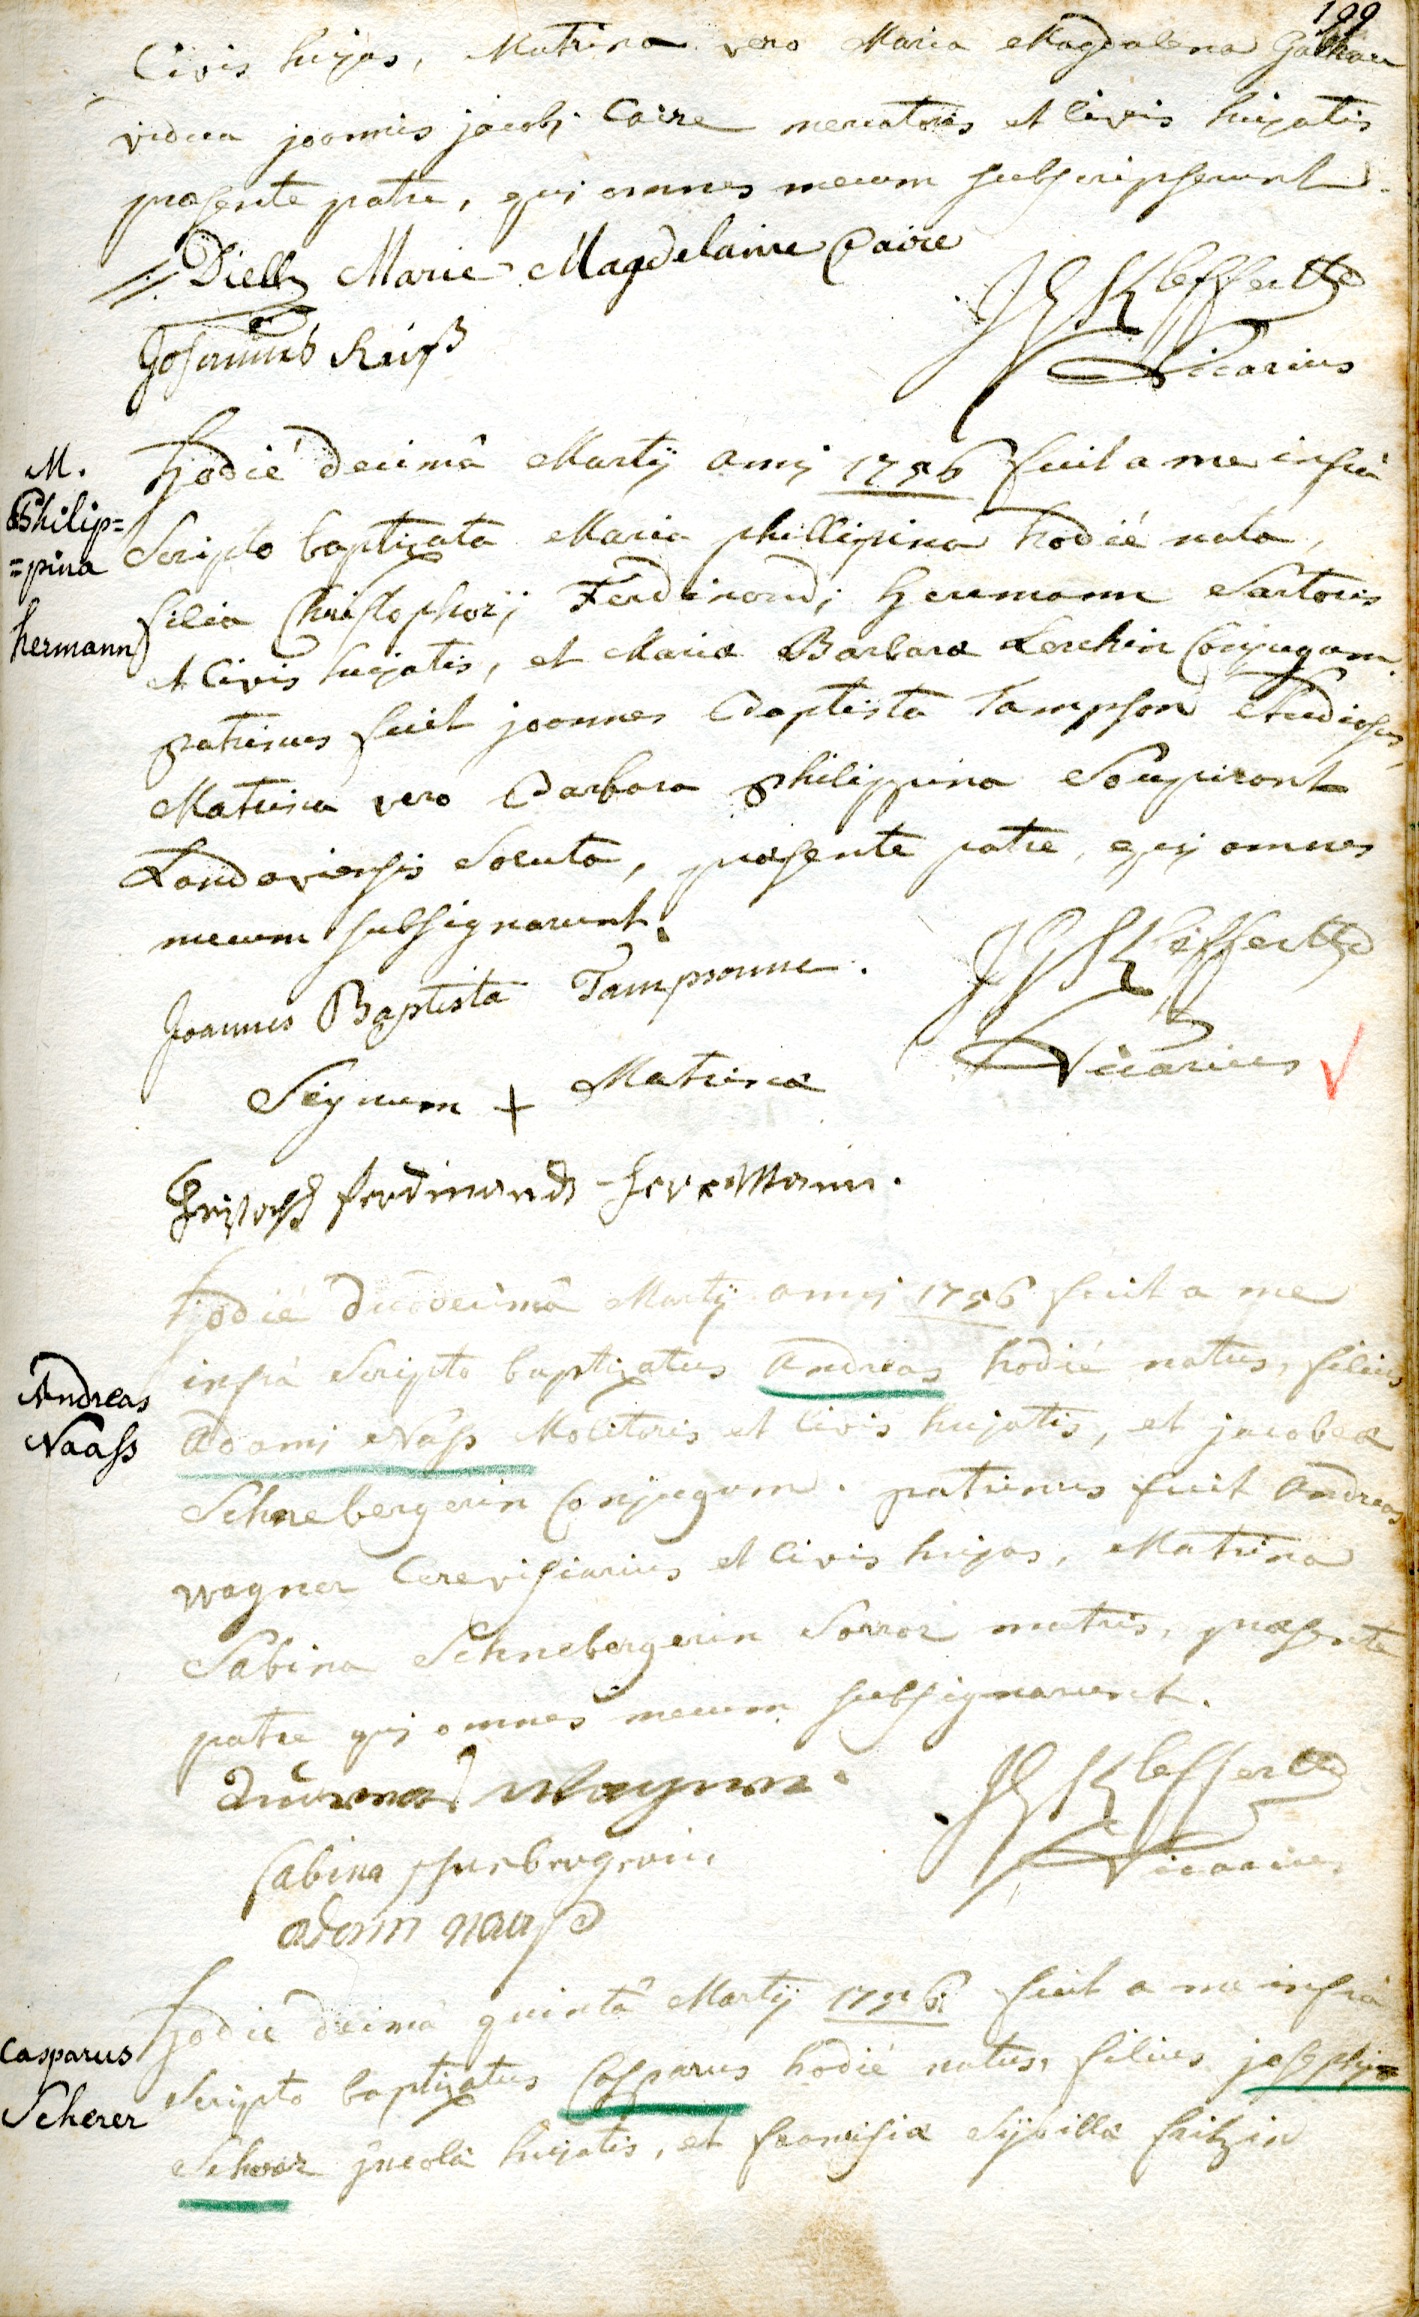 199
Civis hujas, Matrina vero Maria Magdalena
vidua joannis jacobi Caire mercatoris et Civis hujatis
præsente patre, qui omnes mecum subscripserunt.
Diell Marie Magdelaine Caire
JGKleffertz
Johannes
Vicarius
M.
Philip=
=pina
hermann
Hodié decimâ Martij anni 1756 fuit a me infrà
Scripto baptizata Maria phillipina hodié nata,
filia Christophorj Ferdinandj Hermann Sartoris
et Civis hujatis, et Mariæ Barbaræ Lerchin Conjugum.
patrinus fuit joannes Baptista Tampson Studiosus,
Matrina vero Barbara philippina Soupirant
Landaviensis Soluta, præsente patre, qui omnes
mecum subsignarunt.
Joannes Baptista Tampsonne.
JGKleffertz
Vicarius
Signum + Matrinæ
Christoph ferdinandt Herrmann.
Hodié duodecimâ Martij anni 1756 fuit a me
Andreas
Naass
infrà Scripto baptizatus Andreas hodié natus, filius
Adami Nass Molitoris et Civis hujatis, et jacobeæ
Schnebergerin Conjugum. patrinus fuit Andreas
Wagner Cerevisiarius et Civis hujas, Matrina
Sabina Schnebergerin Sorror matris, præsente
patre qui omnes mecum subsignarunt.
Andreas Wagner.
JGKleffertz
Vicarius
Sabina schnebergerin.
adam nass
Casparus
Scherer
Hodié decimâ quintâ Martij 1756 fuit a me infrà
Scripto baptizatus Casparus hodié natus, filius josephj
Scherer jncolâ hujatis, et francisiæ Sijbillæ fritzin